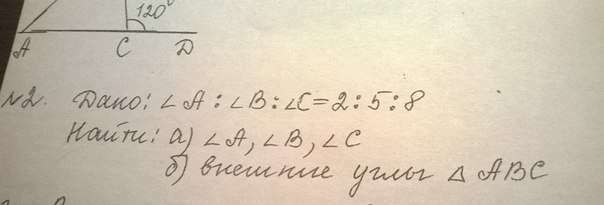 120°
A C D
№2. Дано: ∠A:∠B:∠C=2:5:8
Найти: а) ∠A, ∠B, ∠C
б) внешние углы △ ABC